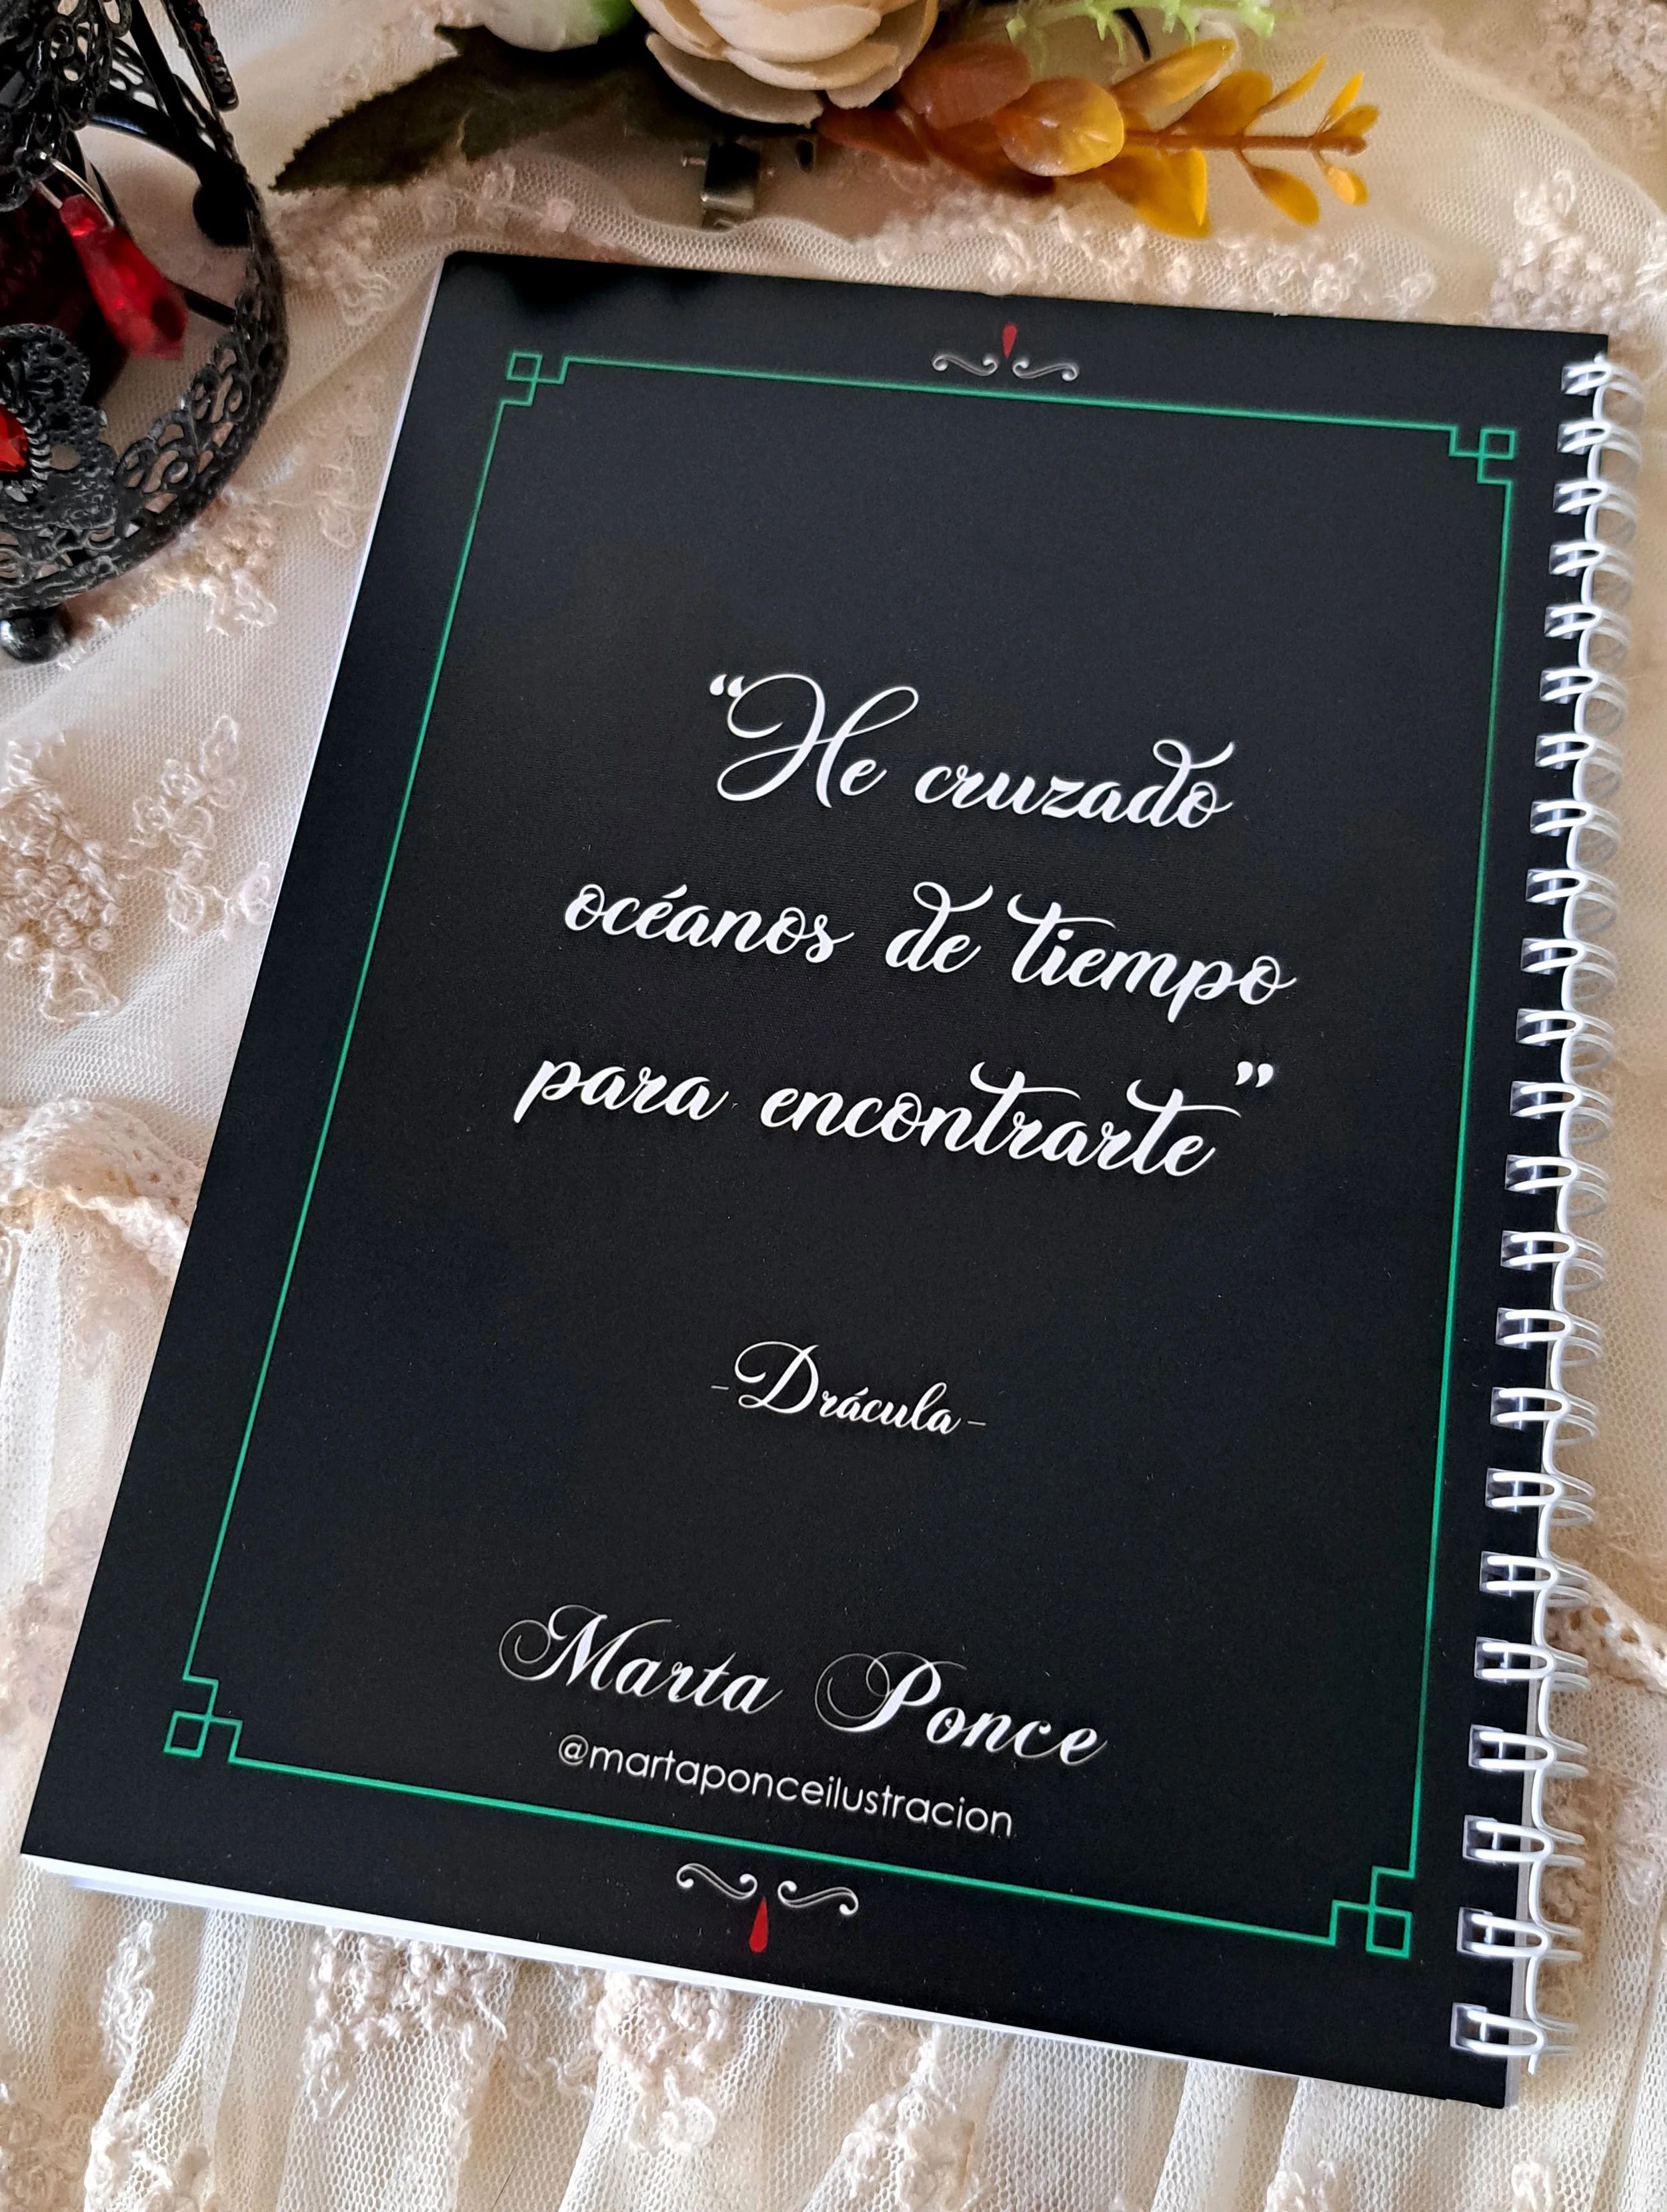 “He cruzado
océanos de tiempo
para encontrarte”
-Drácula-
Marta Ponce
@martaponceilustracion